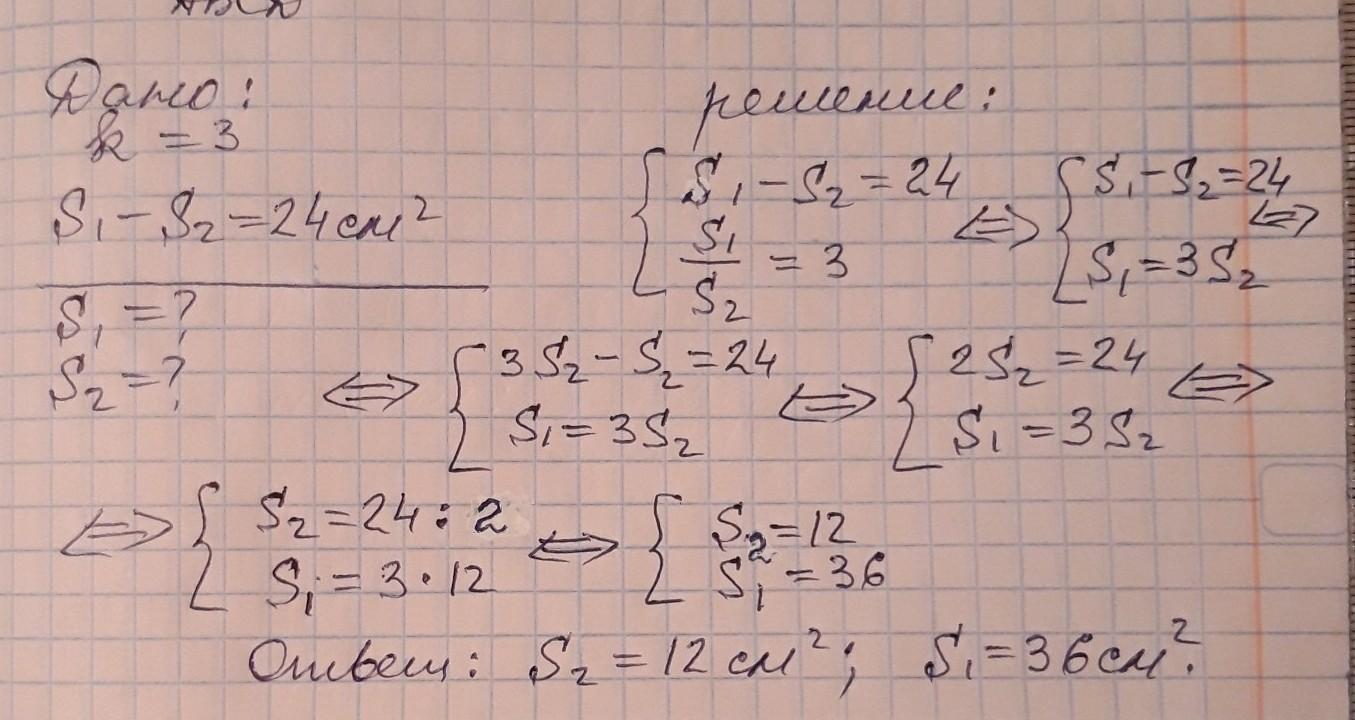 Дано:
k = 3
S₁ – S₂ = 24 см²
S₁ = ?
S₂ = ?
решение:
{ S₁ – S₂ = 24
S₁/S₂ = 3
⇔ { S₁ – S₂ = 24
S₁ = 3S₂ ⇔
⇔ { 3S₂ – S₂ = 24
S₁ = 3S₂
⇔ { 2S₂ = 24
S₁ = 3S₂ ⇔
⇔ { S₂ = 24 : 2
S₁ = 3 · 12
⇔ { S₂ = 12
S₁ = 36
Ответ: S₂ = 12 см²; S₁ = 36 см².